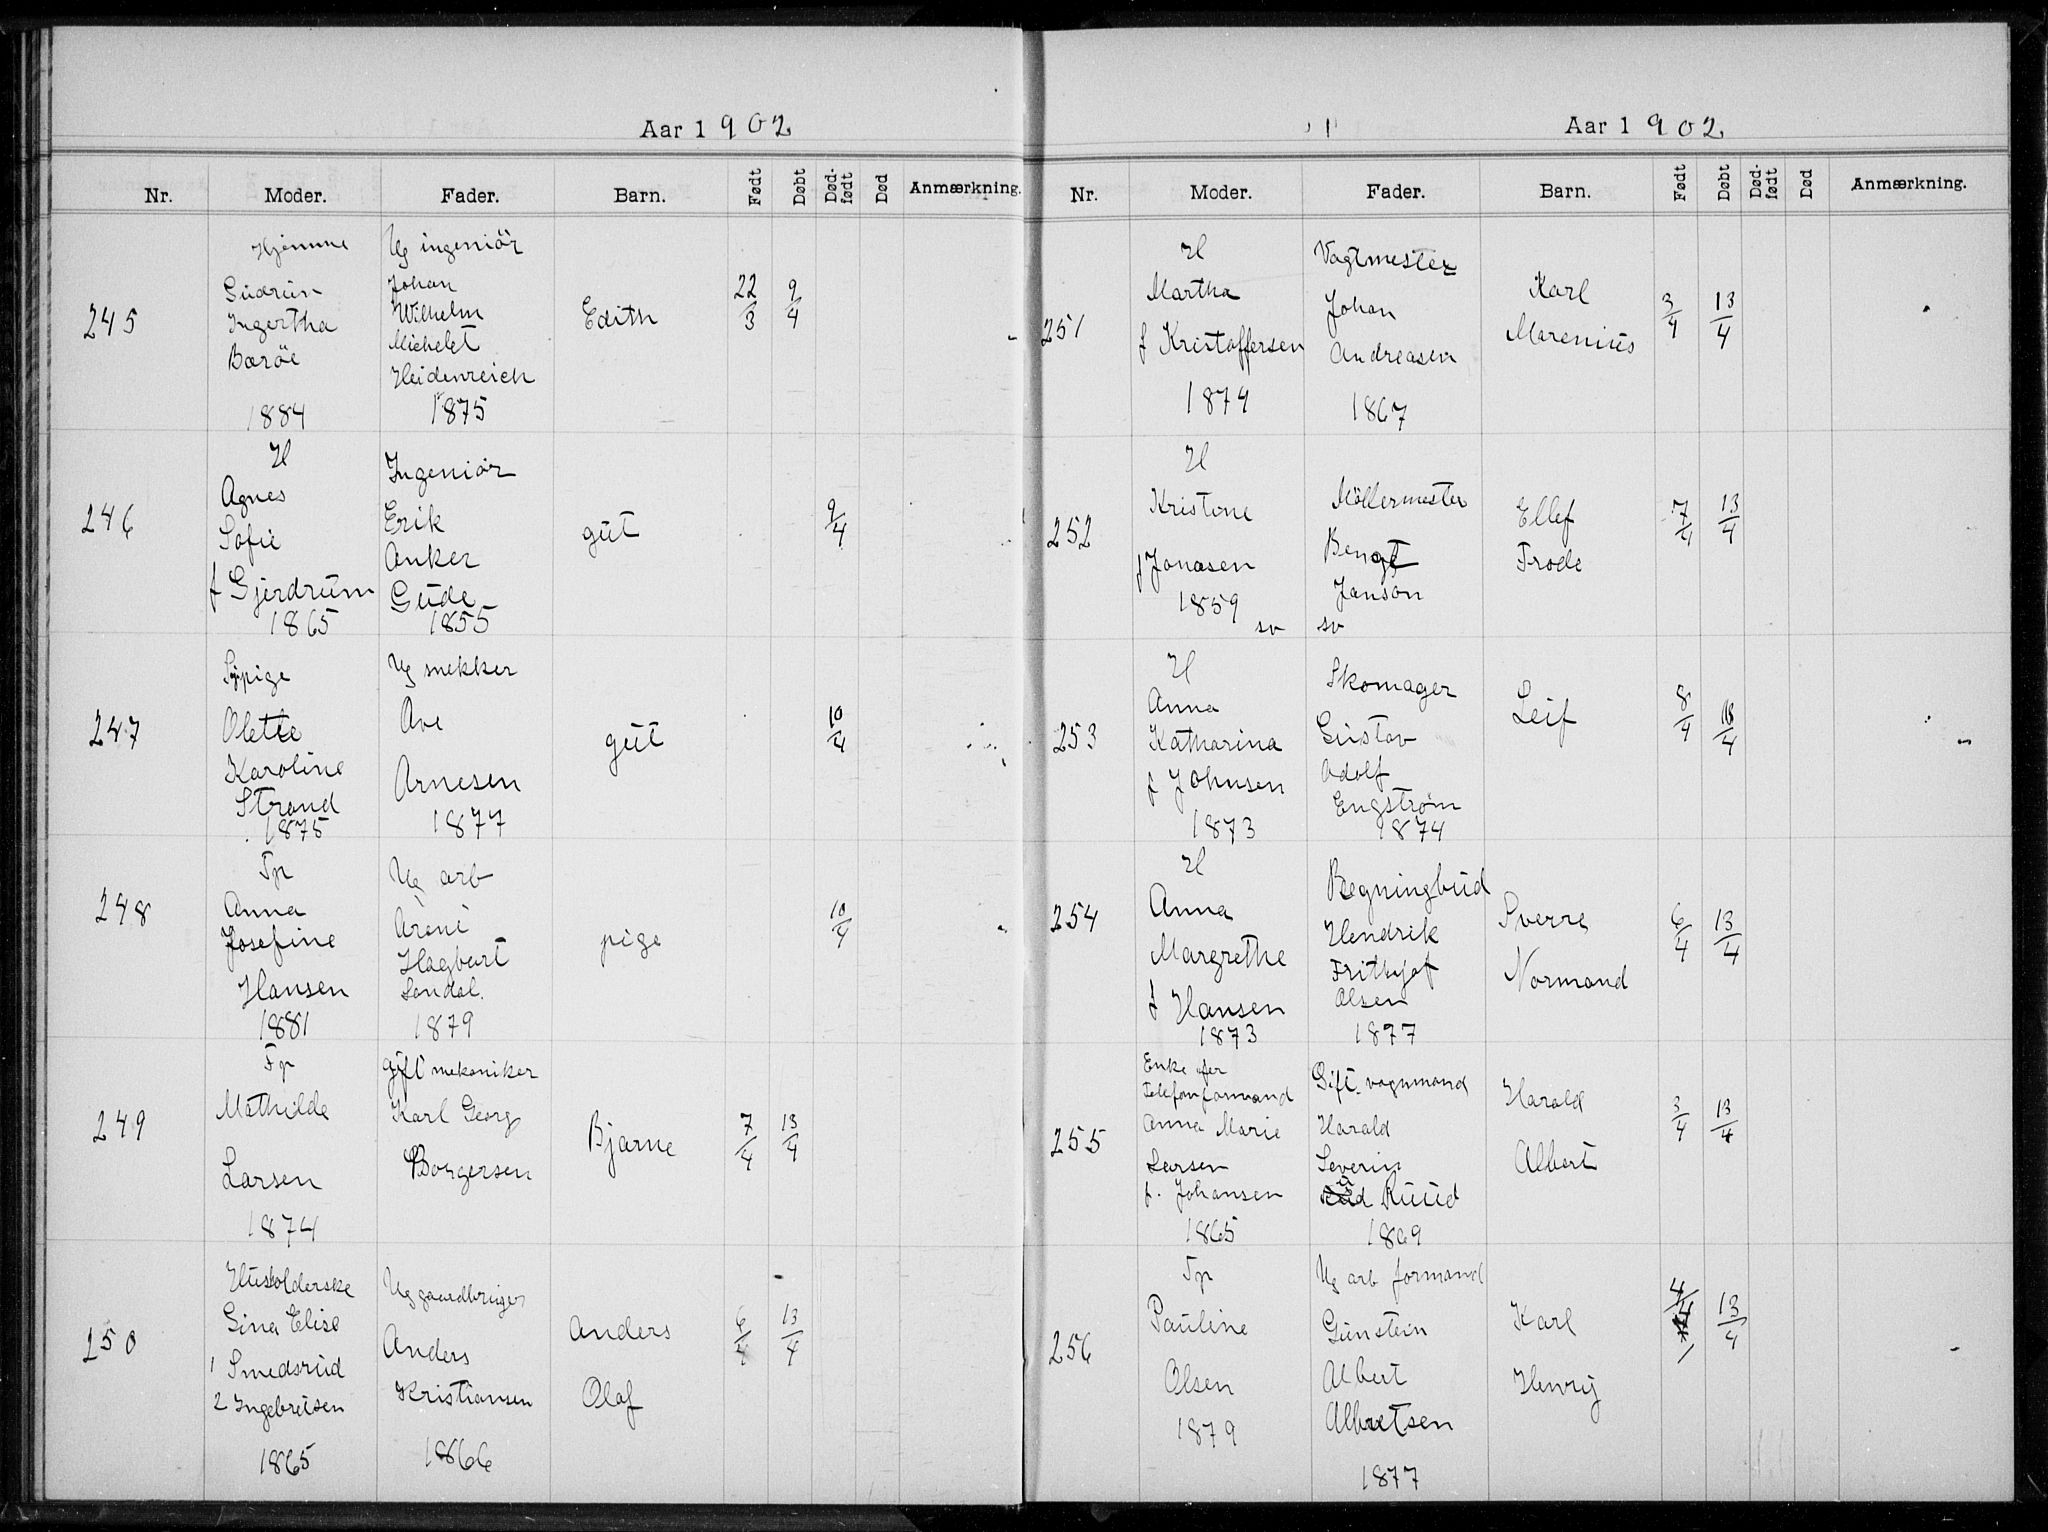 Aar 1902
Nr. Moder. Fader. Barn. Født Døbt Død-født Død Anmærkning.
245
Hjemme
Gudrun
Ingertha
Barøe
1884
Ug ingeniör
Johan
Wilhelm
Michelet
Heidenreich
1875
Edith
22/3 9/4
246
H
Agnes
Sofie
f Gjerdrum
1865
Ingeniör
Erik
Anker
Gude
1855
gut
9/4
247
Sypige
Olette
Karoline
Strand
1875
Ug snekker
Ave
Arnesen
1877
gut
10/4
248
Tp
Anna
Josefine
Hansen
1881
Ug arb
Arent
Hagbart
Sandal.
1879
pige
10/4
249
Fp
Mathilde
Larsen
1874
gift mekaniker
Karl Georg
Borgersen
Bjarne
7/4 13/4
250
Husholderske
Gina Elise
1 Smedsrud
2 Ingebretsen
1865
Ug gaardbruger
Anders
Kristiansen
1866
Anders
Olaf
6/4 13/4
Aar 1902
Nr. Moder. Fader. Barn. Født Døbt Død-født Død Anmærkning.
251
H
Martha
f Kristoffersen
1874
Vagtmester
Johan
Andreasen
1867
Karl
Marenius
3/4 13/4
252
H
Kristine
f Jonasen
1859
sv
Möllermester
Bengt
Janson
sv
Ellef
Frode
7/4 13/4
253
H
Anna
Katharina
f Johnsen
1873
Skomager
Gustav
Adolf
Engstrøm
1874
Leif
8/4
254
H
Anna
Margrethe
f Hansen
1873
Regningbud
Hendrik
Frithjof
Olsen
1877
Sverre
Normand
6/4 13/4
255
Enke efter
telefonformand
Anna Marie
Larsen
f. Johansen
1865
Gift vognmand
Harald
Severin
Ruud
1869
Harald
Albert
3/4 13/4
256
Tp
Pauline
Olsen
1879
Ug arb formand
Gunstein
Albert
Albretsen
1877
Karl
Henry
4/4 13/4